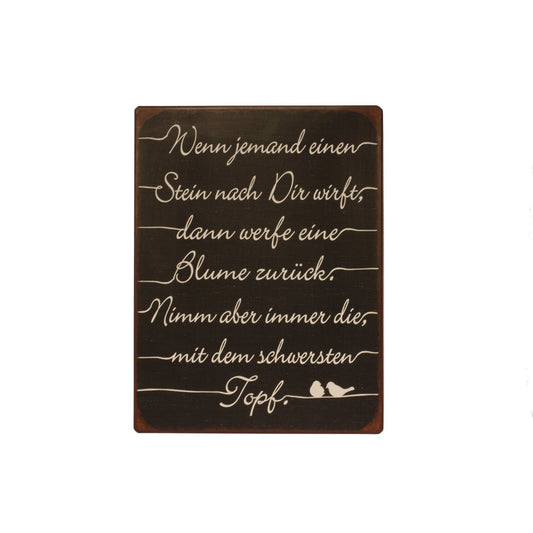 Wenn jemand einen
Stein nach Dir wirft,
dann werfe eine
Blume zurück.
Nimm aber immer die,
mit dem schwersten
Topf.